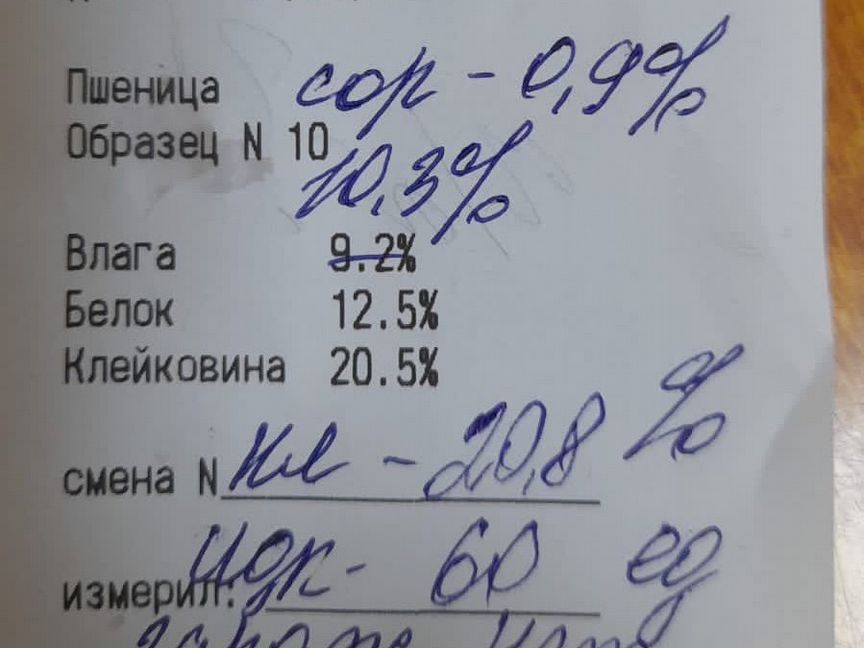 Пшеница сор - 0,9%
Образец N 10
10,3%
Влага 9.2%
Белок 12.5%
Клейковина 20.5%
смена N кл - 20,8 %
измерил: идк - 60 ед